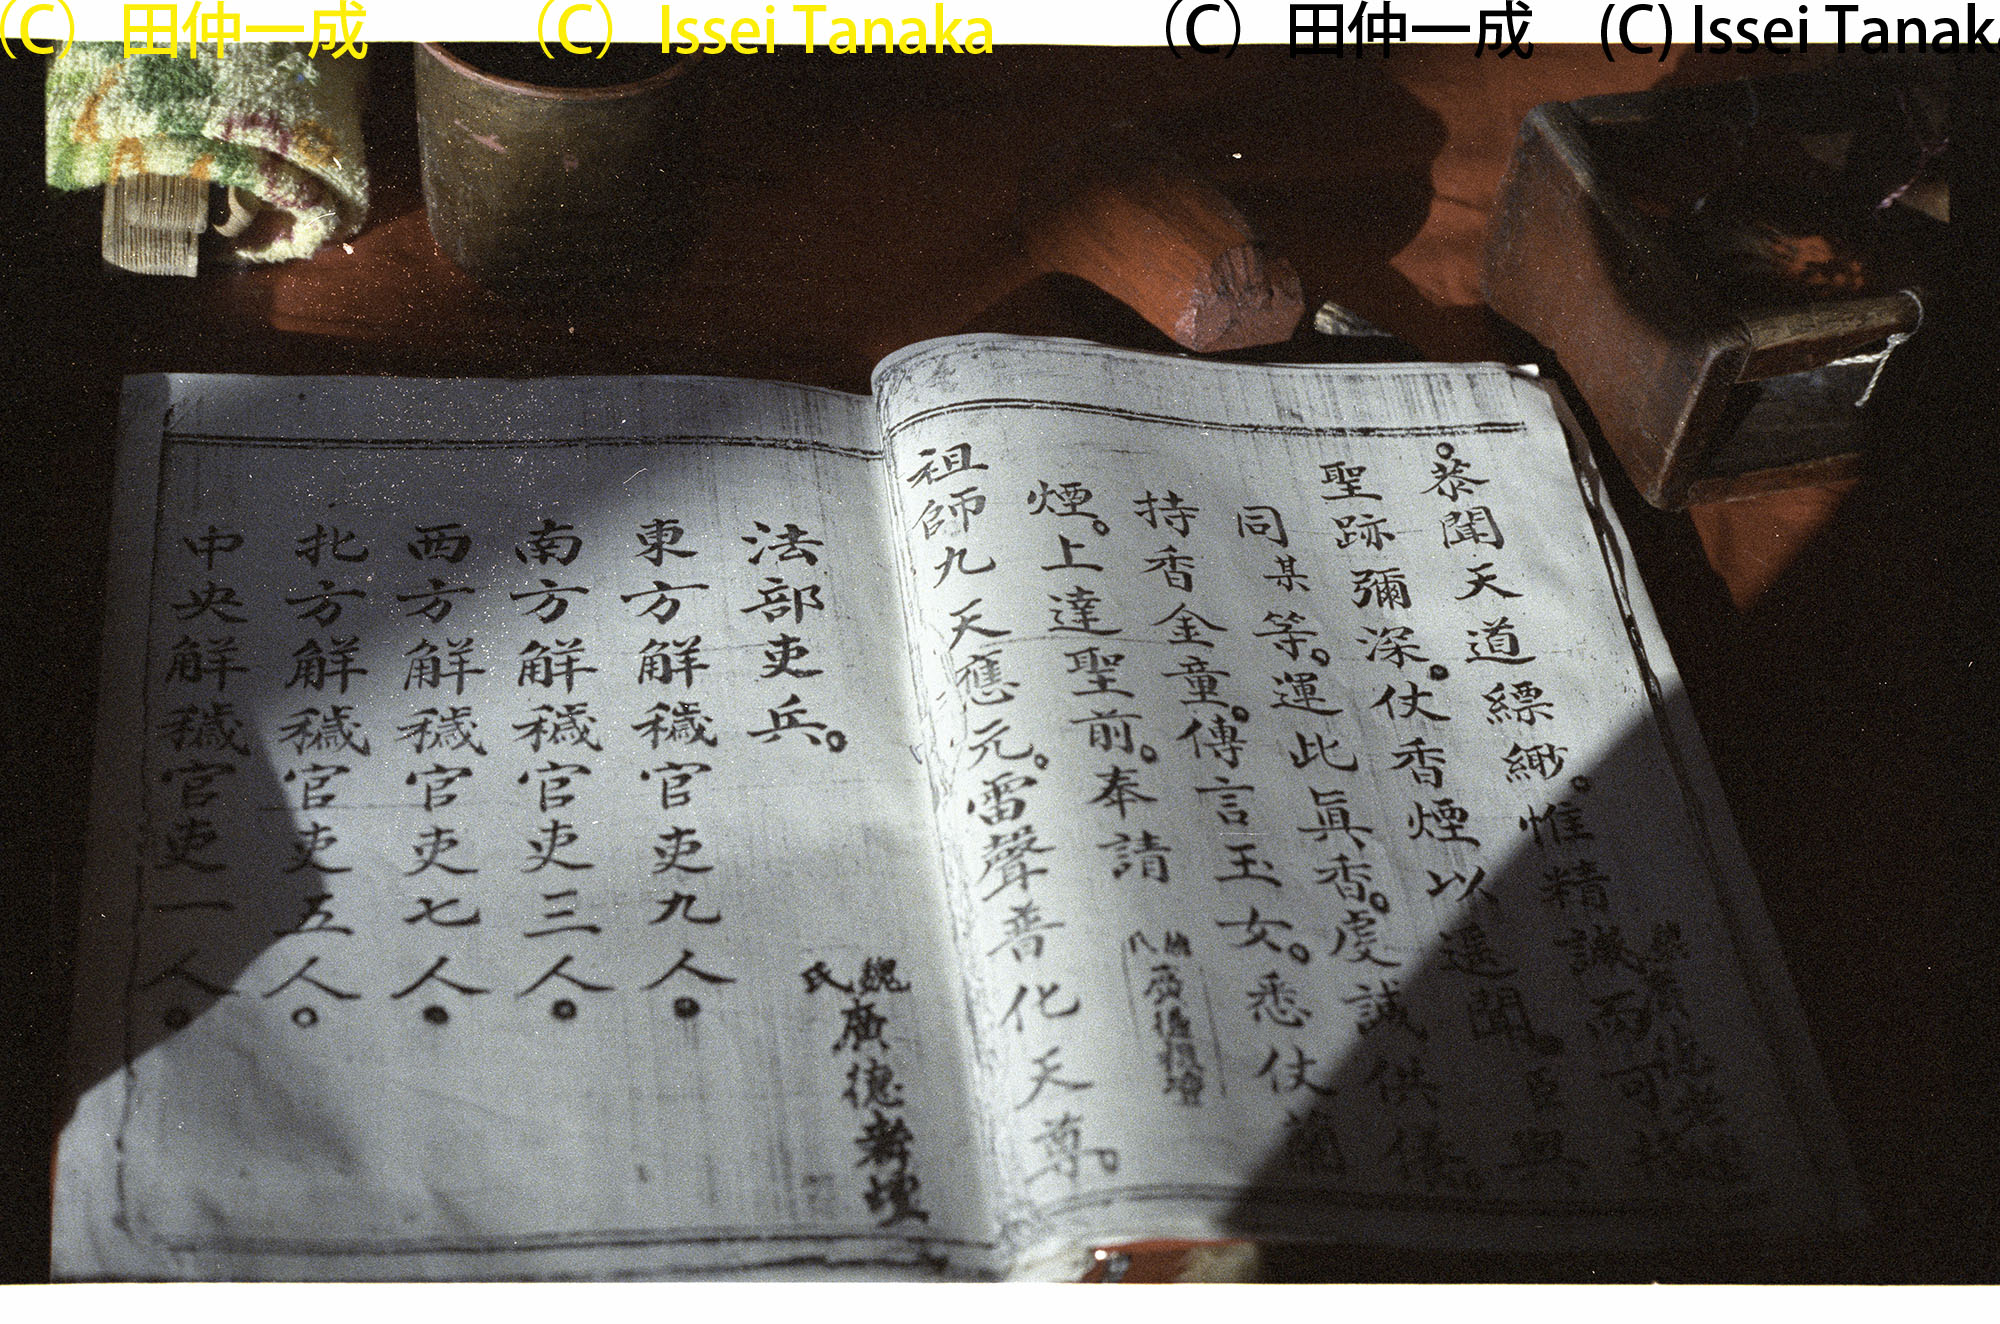 （C） 田仲一成
（C） Issei Tanaka
（C） 田仲一成
(C) Issei Tanaka
恭聞天道縹緲。惟精誠而可
聖跡彌深。仗香煙以遥聞。臣與
同某等。運此眞香。虔誠供養。
持香金童。傳言玉女。悉仗蘭
煙。上達聖前。奉請
祖師九天應元。雷聲普化天尊。
法部吏兵。
魏氏廣德新壇
東方解穢官吏九人。
南方解穢官吏三人。
西方解穢官吏七人。
北方解穢官吏五人。
中央解穢官吏一人。